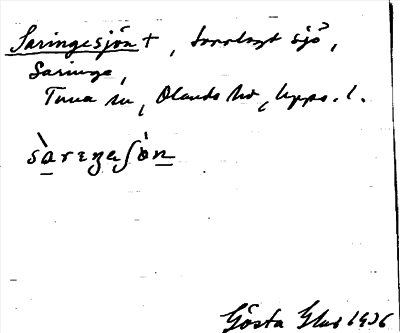 Saringesjön +, torrlagt sjö,
Saringe,
Tuna sn, Olands hd, Upps. l.
sàrеŋаʃòn
Gösta Glas 1936